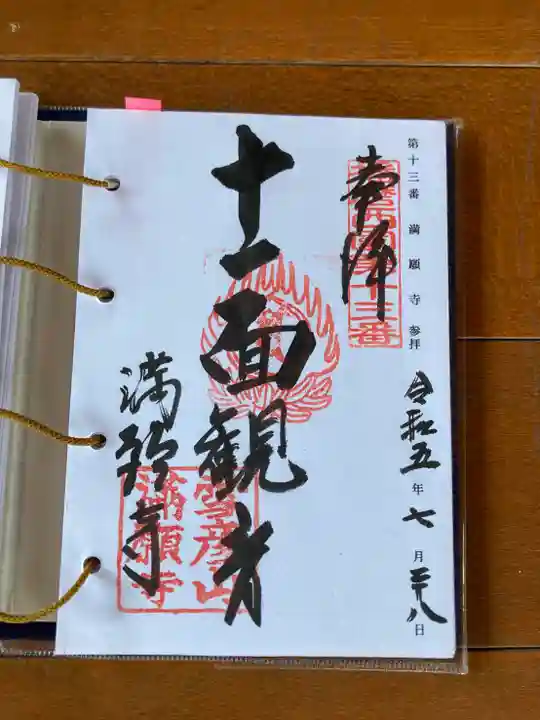 第十三番 満願寺 参拝 令和五年七月二十八日
奉拝
播磨西国第十三番
十一面観音
満願寺
雪彦山
満願寺